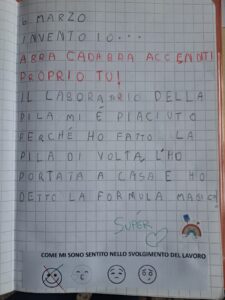 6 MARZO
INVENTO IO...
ABRA CADABRA ACCENDITI
PROPRIO TU!
IL LABORATORIO DELLA
PILA MI È PIACIUTO
PERCHÉ HO FATTO LA
PILA DI VOLTA, L'HO
PORTATA A CASA E HO
DETTO LA FORMULA MAGICA
SUPER
COME MI SONO SENTITO NELLO SVOLGIMENTO DEL LAVORO